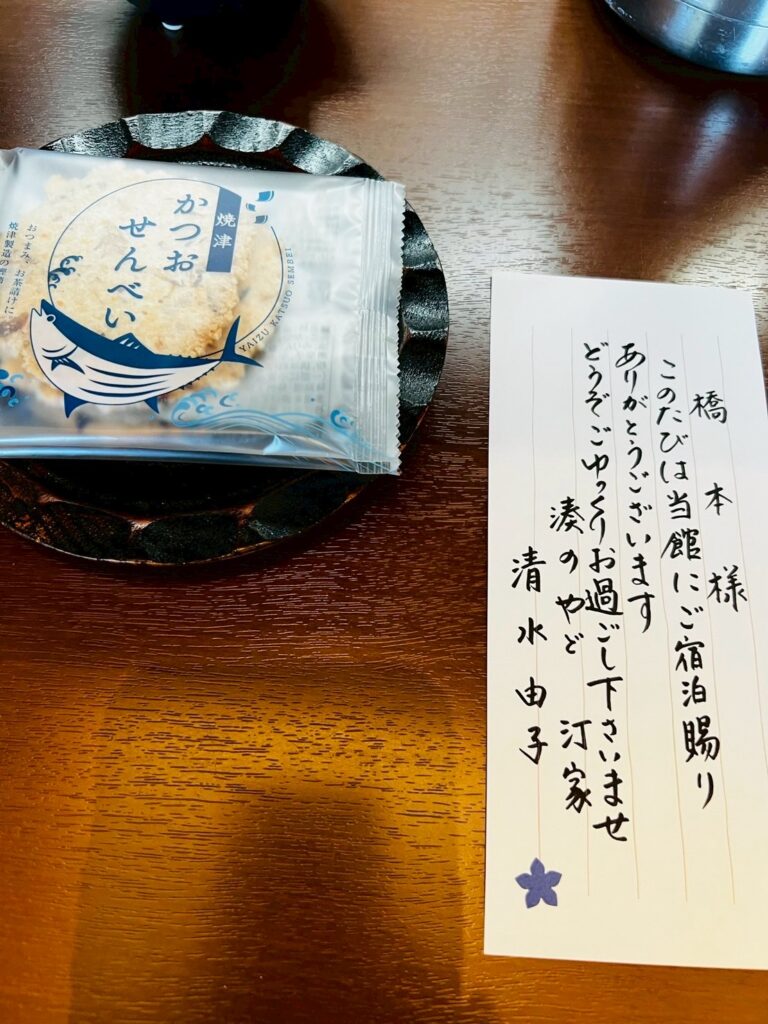 焼津
かつお
せんべい
YAIZU KATSUO SEMBEI
おつまみ、お茶請けに
橋本様
このたびは当館にご宿泊賜り
ありがとうございます
どうぞごゆっくりお過ごし下さいませ
湊のやど 汀家
清水由子